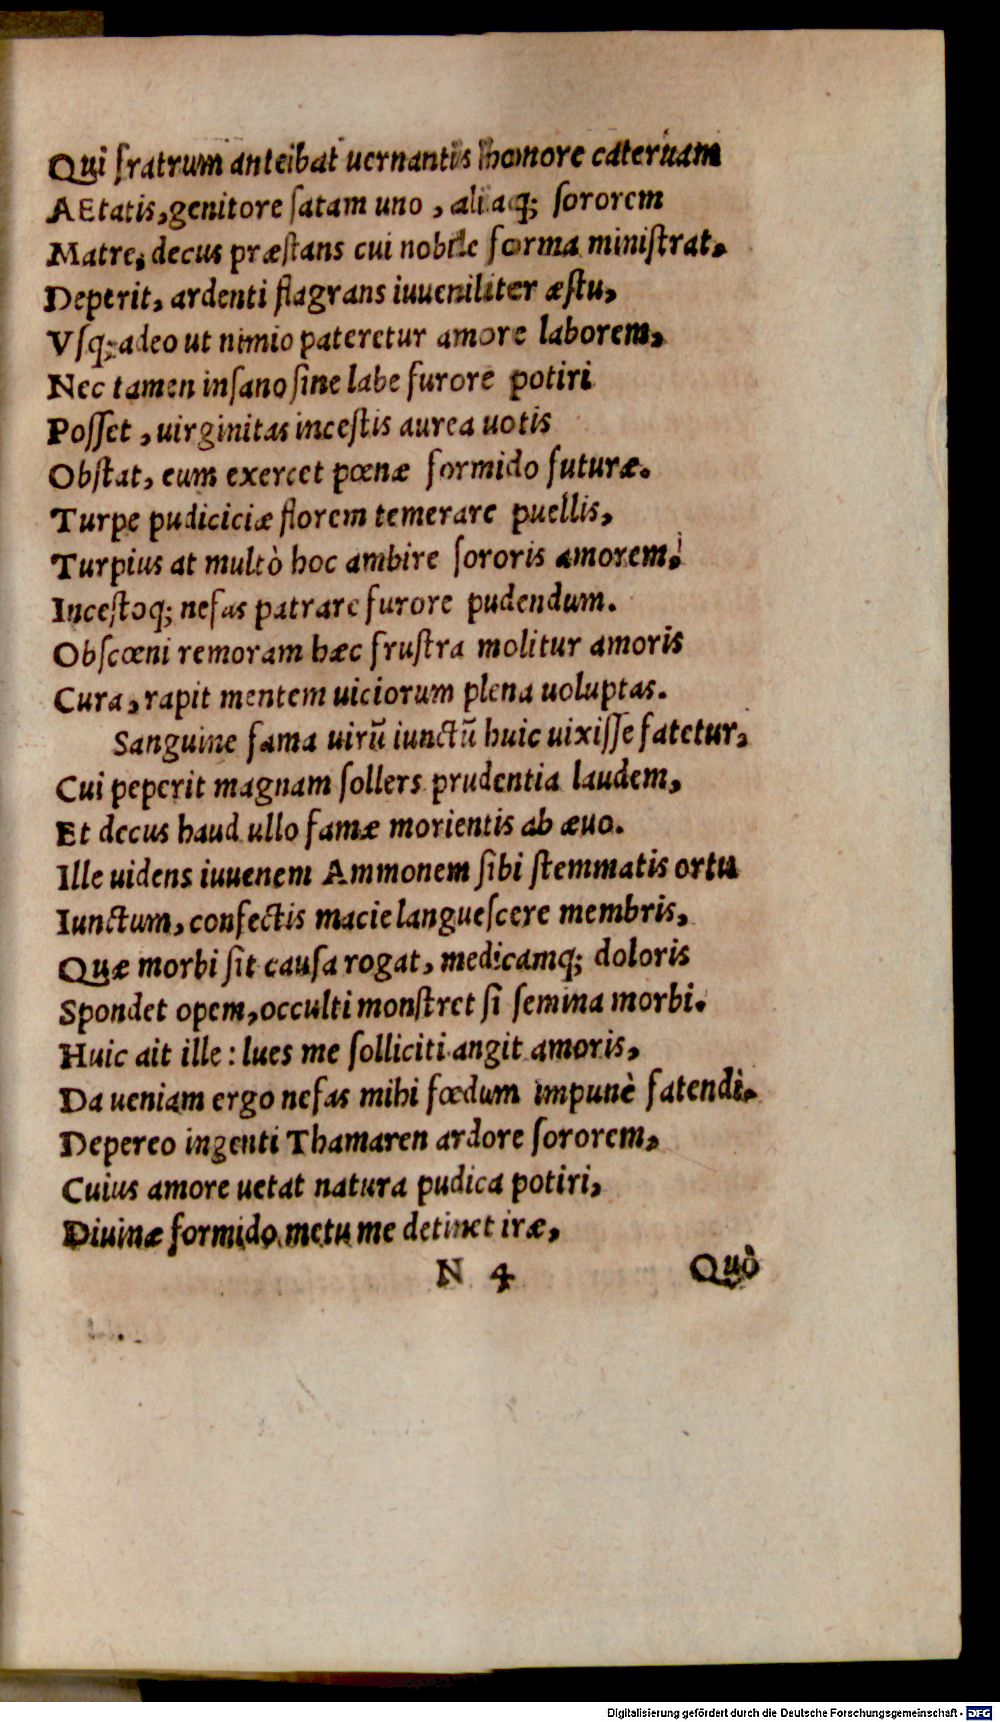 Qui fratrum anteibat uernantis honore cateruam
AEtatis, genitore ſatam uno, aliaq; ſororem
Matre, decus præſtans cui nobile forma miniſtrat,
Deperit, ardenti flagrans iuueniliter æſtu,
Vſq; adeo ut nimio pateretur amore laborem,
Nec tamen inſano ſine labe furore potiri
Poſſet, uirginitas inceſtis aurea uotis
Obſtat, eum exercet pœnæ formido futuræ.
Turpe pudiciciæ florem temerare puellis,
Turpius at multò hoc ambire ſororis amorem,
Inceſtoq; nefas patrare furore pudendum.
Obſcœni remoram hæc fruſtra molitur amoris
Cura, rapit mentem uiciorum plena uoluptas.
Sanguine fama uirũ iunctũ huic uixiſſe fatetur,
Cui peperit magnam ſollers prudentia laudem,
Et decus haud ullo famæ morientis ab æuo.
Ille uidens iuuenem Ammonem ſibi ſtemmatis ortu
Iunctum, confectis macie langueſcere membris,
Quæ morbi ſit cauſa rogat, medicamq; doloris
Spondet opem, occulti monſtret ſi ſemina morbi.
Huic ait ille: lues me ſolliciti angit amoris,
Da ueniam ergo nefas mihi fœdum impunè fatendi.
Depereo ingenti Thamaren ardore ſororem,
Cuius amore uetat natura pudica potiri,
Diuinæ formido metu me detinet iræ,
N 4 Quò
Digitalisierung gefördert durch die Deutsche Forschungsgemeinschaft - DFG